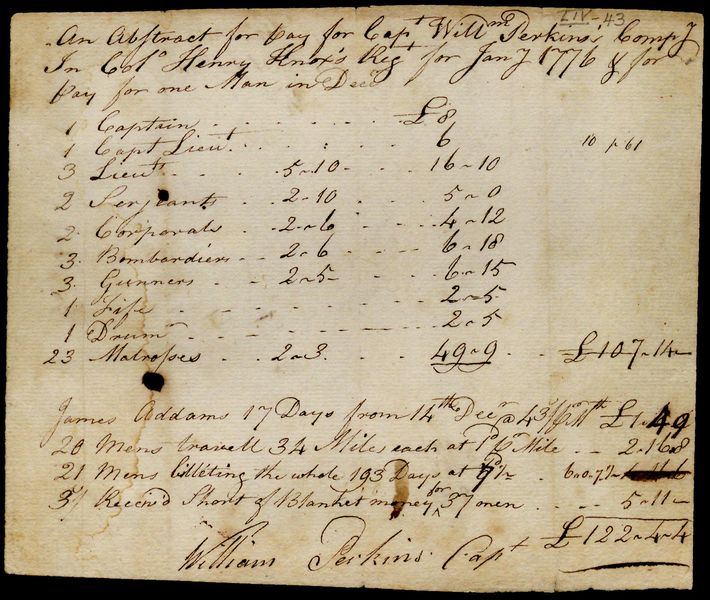 LIV-43
An Abstract for Pay for Capt Willm Perkins' Compy
In Colo Henry Knox's Reg for Jany 1776 & for
Pay for one Man in Decr
1 Captain . . . . . . . £8
1 Capt Lieut . . . . . 6
3 Lieuts . . . 5 " 10 . . . 16 " 10
2 Serjeants . . 2 " 10 . . . 5 " 0
2 Corporals . . 2 " 6 . . . 4 " 12
3 Bombardiers . . 2 " 6 . . . 6 " 18
3 Gunners . . . 2 " 5 . . . 6 " 15
1 Fife . . . . . . . 2 " 5
1 Drum . . . . . . . 2 " 5
23 Matrosses . . 2 " 3 . . . 49 " 9 . . £107 " 14 "
James Addams 17 Days from 14th Decr @ 43/ Mth £1 " 4 9
20 Mens travell 34 Miles each at 1d Mile . . 2 " 16 " 8
21 Mens billeting the whole 193 Days at . 6 " 0 " 7½
Receiv'd Short of Blanket money for 37 men . . . . 5 " 11 "
£122 " 4 " 4
William Perkins Capt